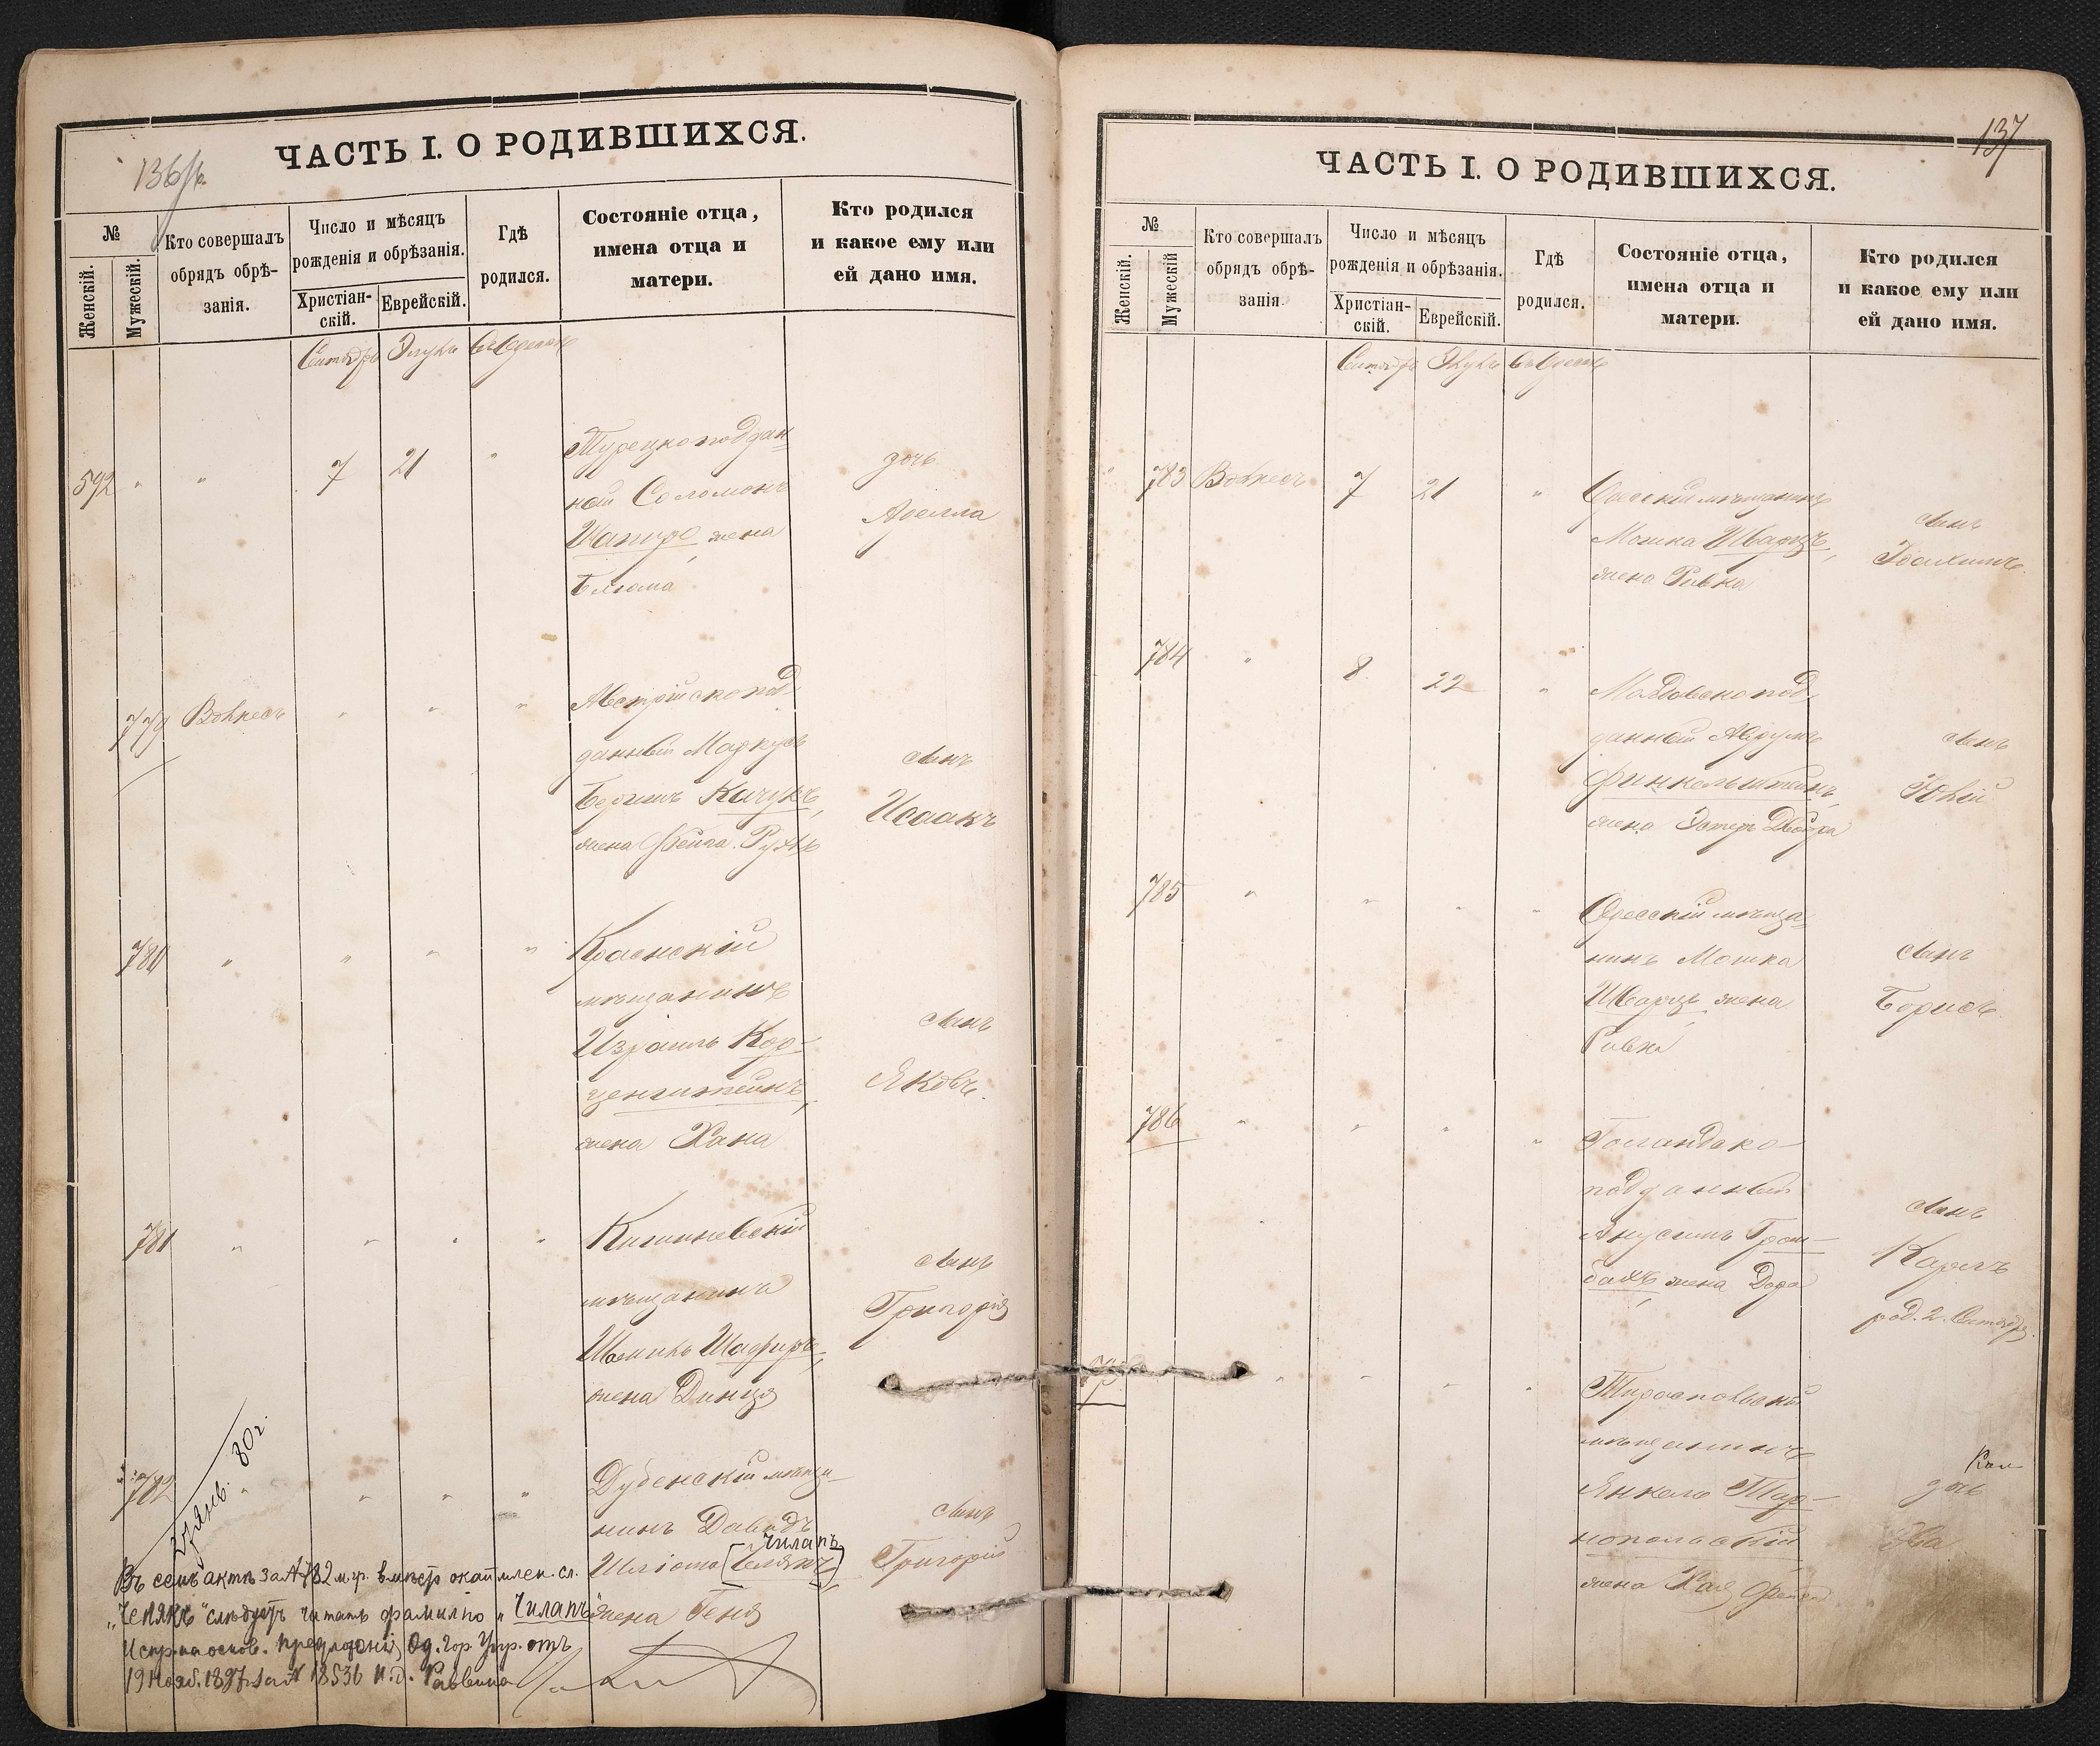 136/об.
ЧАСТЬ I. О РОДИВШИХСЯ.
№
Женскій.
Мужескій.
Кто совершалъ
обрядъ обрѣ-
занія.
Число и мѣсяцъ
рожденія и обрѣзанія.
Христіан-
скій.
Еврейскій.
Гдѣ
родился.
Состояніе отца,
имена отца и
матери.
Кто родился
и какое ему или
ей дано имя.
Сентябрь Элулъ въ Одессѣ
592 " " 7 21 "
Турецкоподдан-
ный Соломонъ
Шапиро, жена
Блюма
дочь
Аделла
779 " " "
Австрійскопод-
данный Маркусъ
Беришъ Качукъ,
жена Фейга-Рухль
сынъ
Исаакъ
780 " " " "
Краснскій
мѣщанинъ
Израиль Кор-
ценштейнъ,
жена Хана
сынъ
Яковъ.
781 " " " "
Кишиневскій
мѣщанинъ
Шафиръ,
жена Динця
сынъ
Григорій
782 " " " "
Дубенскій мѣща-
нинъ Давидъ
Чилапъ
Шліома [ ],
жена Геня
сынъ
Григорій
27 Янв. 80 г.
Въ семъ актѣ за № 782 м.р. вмѣст.
слѣдуетъ читать фамилію „Чилапъ"
Испр. на основ. предложенія Од. Гор. Упр. отъ
19 Нояб. 1897 за № 18536 И. д. Раввина
137
ЧАСТЬ I. О РОДИВШИХСЯ.
№
Женскій.
Мужескій
Кто совершалъ
обрядъ обрѣ-
занія.
Число и мѣсяцъ
рожденія и обрѣзанія.
Христіан-
скій.
Еврейскій.
Гдѣ
родился.
Состояніе отца,
имена отца и
матери.
Кто родился
и какое ему или
ей дано имя.
Сентябрь Элулъ въ Одессѣ
" 783 7 21 "
Одесскій мѣщанинъ
Мошка Шварцъ,
жена Ривка
сынъ
Іоахимъ.
784 " 8 22 "
Молдовскопод-
данный Аврумъ
Финкельштейнъ,
жена Эстеръ Двойра
сынъ
785 " " " "
Одесскій мѣща-
нинъ Мошка
Шварцъ, жена
Ривка
сынъ
Борисъ.
786 " " " "
Голандско-
подданный
сынъ
Карлъ
род. 2. Сентября.
" " " "
Тираспольскій
мѣщанинъ
Янкель Тар-
нопольскій
жена Хая Фейга
дочь